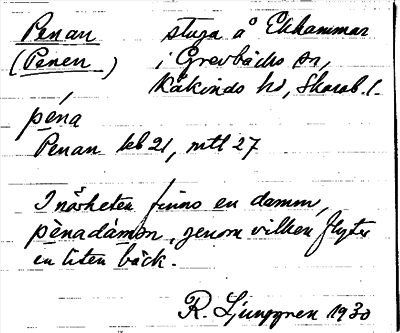 Penan stuga å Ekhammar
(Penen) i Grevbäcks sn,
Kåkinds hd, Skarab. l.
pèna
Penan kb 21, mtl 27
I närheten finns en damm,
pènadámən, genom vilken flyter
en liten bäck.
R. Ljunggren 1930